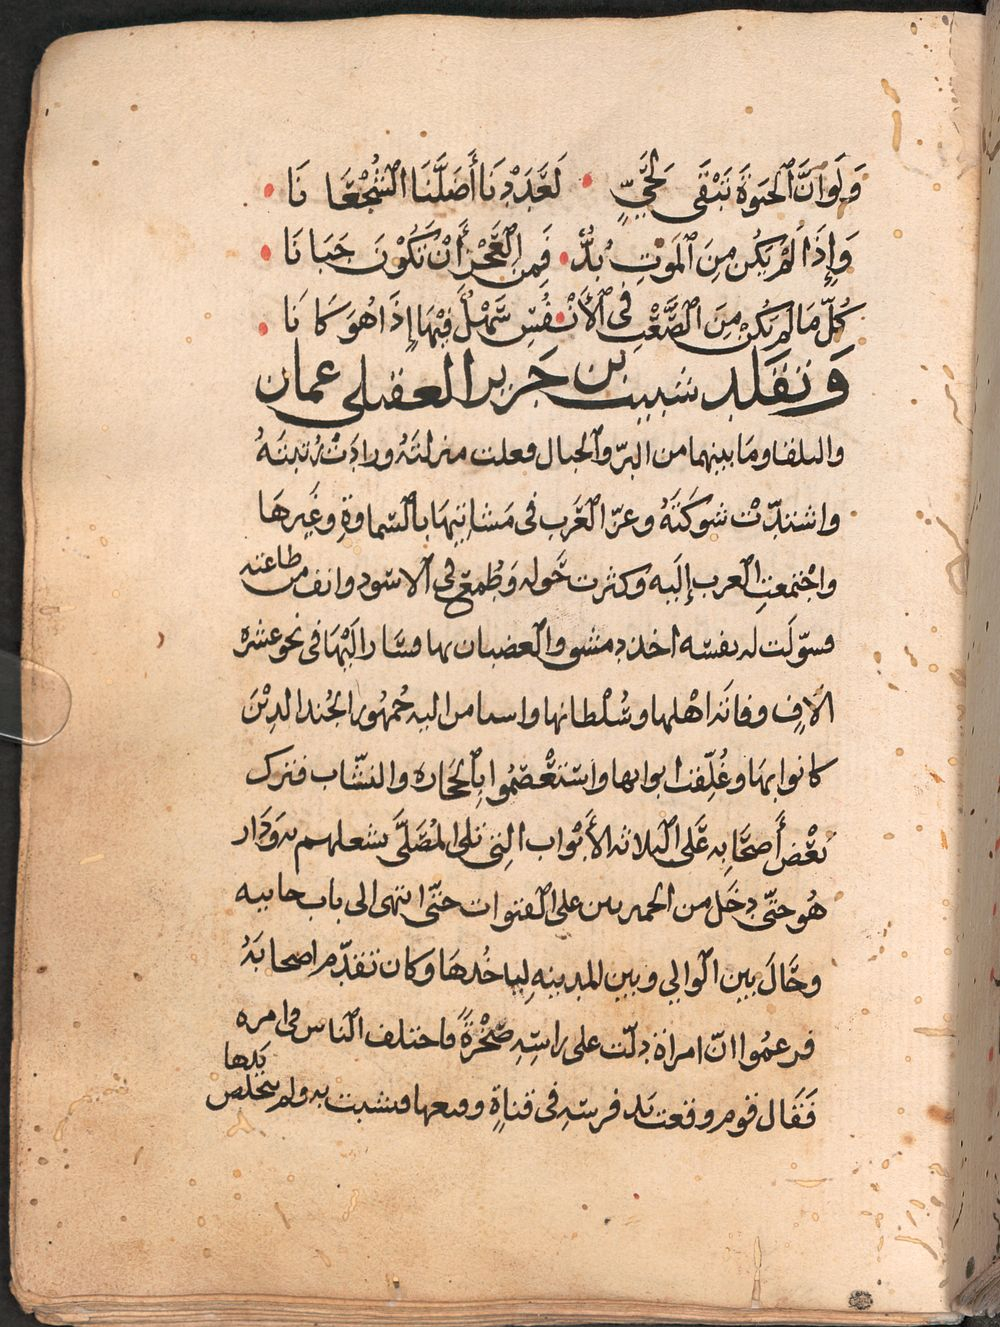 وَلَوَ انَّ ٱلحَيوةَ تَبْقَى لِحَيٍّ لَعَدَدْنَا أَضَلَّنَا ٱلشُّجْعَانَا
وَإِذَا لَمْ يَكُن مِنَ ٱلمَوتِ بُدٌّ فَمِنَ ٱلعَجْزِ أَنْ تَكُوْنَ جَبَانَا
كُلّ مَا لم يَكُنْ مِنَ ٱلصَّعْبِ فى ٱلأَنْفُسِ سَهْلٌ فِيْهَا إِذَا هُوَ كَانَا
وَتقلد شبيب بن جَرير العقيلى عمان
والبلقا ومَا بينهما من البرّ وٱلجبال فعلت منزلتهُ وزادَتْ رُتبتهُ
واشتدّت شوكَتَهُ وعزّ ٱلعَرب فى مَشاتِيهَا بٱلسّماوةِ وغَيرهَا
واجْتمعتِ ٱلعرب إلَيه وكثرت حَوله وَطُمعَ في ٱلاسود وانف من طاعته
فسوّلَت له نفسه اخذ دمشق وٱلعصيان بها فسَار الَيْهَا فى نحو عشره
الآفٍ وقاتَله اهْلها وسُلْطانها واستامن اليه جُمهُور الجُند الذِيْنَ
كانوا بهَا وغُلِّقت ابوابها واسْتعْصَمُوا بِٱلحجَاره والنشّاب فترك
بَعْضَ أَصحَابِه عَلَى ٱلثلاثه ٱلأَبْوَاب التِى تلى المُصَلَّى يشغلهم به وَدَار
هُو حتّى دخَل من الحميريين على ٱلقنوات حتّى انتهى الى باب جابيه
وحَالَ بين ٱلوالي وبين المدينهِ لياخُدهَا وكان تقدّم اصحابَهُ
فزعمُوا انّ امراة دلّت على راسِهِ صَخْرةً فاختلف ٱلناس فى امره
فَقَال قوم وقعت يد فرسهِ فى قناةٍ ووسعها فشبت به ولم يتخلص يَدها